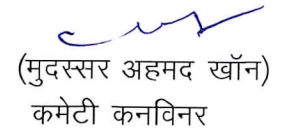 (मुदस्सर अहमद खॉन)
कमेटी कनविनर